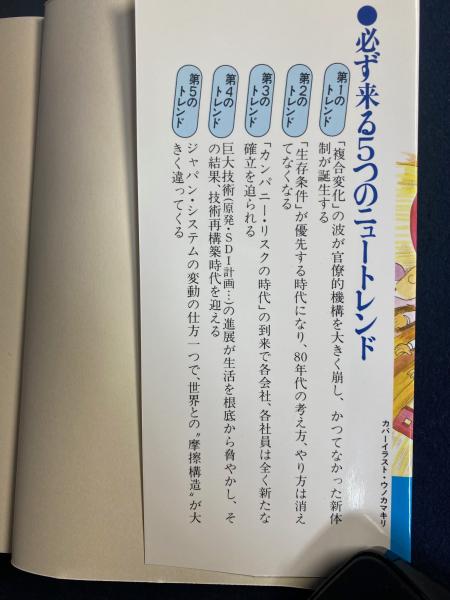 ●必ず来る5つのニュートレンド
第1の
トレンド
「複合変化」の波が官僚的機構を大きく崩し、かつてなかった新体
制が誕生する
第2の
トレンド
「生存条件」が優先する時代になり、80年代の考え方、やり方は消え
てなくなる
第3の
トレンド
「カンパニー・リスクの時代」の到来で各会社、各社員は全く新たな
確立を迫られる
第4の
トレンド
巨大技術(原発・SDI計画…)の進展が生活を根底から脅やかし、そ
の結果、技術再構築時代を迎える
第5の
トレンド
ジャパン・システムの変動の仕方一つで、世界との〝摩擦構造〟が大
きく違ってくる
カバーイラスト・ウノカマキリ